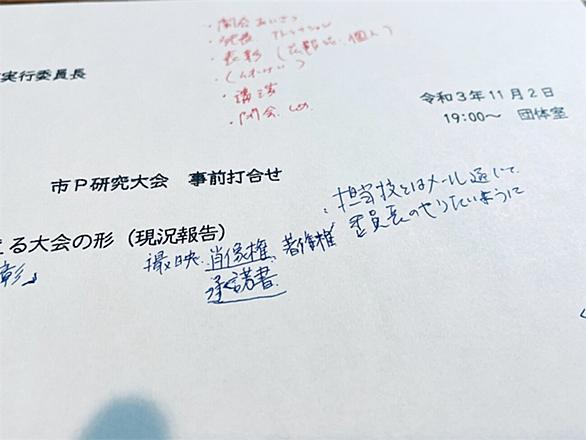 ・開会あいさつ
・発表
・表彰(広報誌・個人)
・講演
・閉会
実行委員長
令和3年11月2日
19:00～ 団体室
市P研究大会 事前打合せ
・担当校とはメール通じて
・委員長のやりたいように
る大会の形(現況報告)
彰』
撮映 肖像権、著作権
承諾書